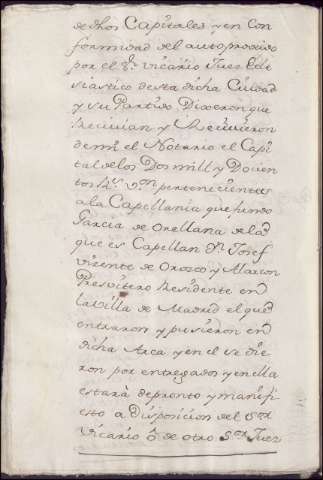 dedhos Capitales y en Con
formidad del auto, proveido
por el Sr. Vicario Juez Ecle
siastico desta dicha Ciudad
y su Partido Dixeron que
Recivian y Recivieron
de mi el Notario el Capi
tal de los Dos mill y Docien
tos Rs. Vn. pertenecientes
a la Capellania que fundo
Garcia de Orellana de la
que es Capellan Dn. Josef
Vizente de Orozco y Alarcon
Presvitero Residente en
la Villa de Madrid el que
entraron y pusieron en
dicha Arca y en el se die
ron por entregados y en ella
estará de pronto y manifi
esto a Disposicion del Sor.
Vicario ó de otro Sor. Juez